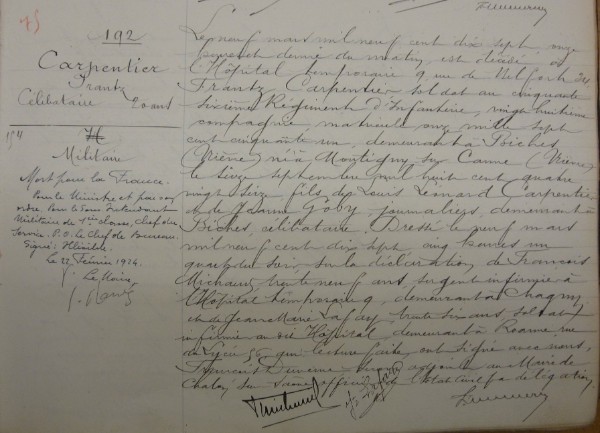 75
192
Carpentier
Frantz
Célibataire 20 ans
Militaire
Mort pour la France.
Pour le Ministre et par son
ordre Pour le Sous Intendant
Militaire de classe, Chef du
Service. P.O. le Chef de Bureau
Signé:
Le 22 Février 1924.
Le Maire
Le neuf mars mil neuf cent dix sept, onze
heures et demie du matin, est décédé à
l'Hôpital temporaire 9, rue de Belfort
Frantz Carpentier soldat au cinquante
sixième Régiment d'Infanterie, vingt huitième
compagnie, matricule onze mille sept
cent cinquante un, demeurant à Biches
(Nièvre) né à Montigny sur Canne (Nièvre)
le seize septembre mil huit cent quatre
vingt seize, fils de Louis Léonard Carpentier
et de Jeanne Goby, journaliers, demeurant à
Biches, célibataire. Dressé le neuf mars
mil neuf cent dix sept, cinq heures un
quart du soir, sur la déclaration de François
Michaud, trente neuf ans, sergent infirmier à
l'Hôpital temporaire 9, demeurant à Chagny
et de Jean Marie Lafay, trente six ans, soldat
infirmier au dit Hôpital, demeurant à Roanne, rue
du Lycée 56, qui lecture faite, ont signé avec nous,
François adjoint au Maire de
Chalon sur Saône, officier de l'Etat Civil par délégation